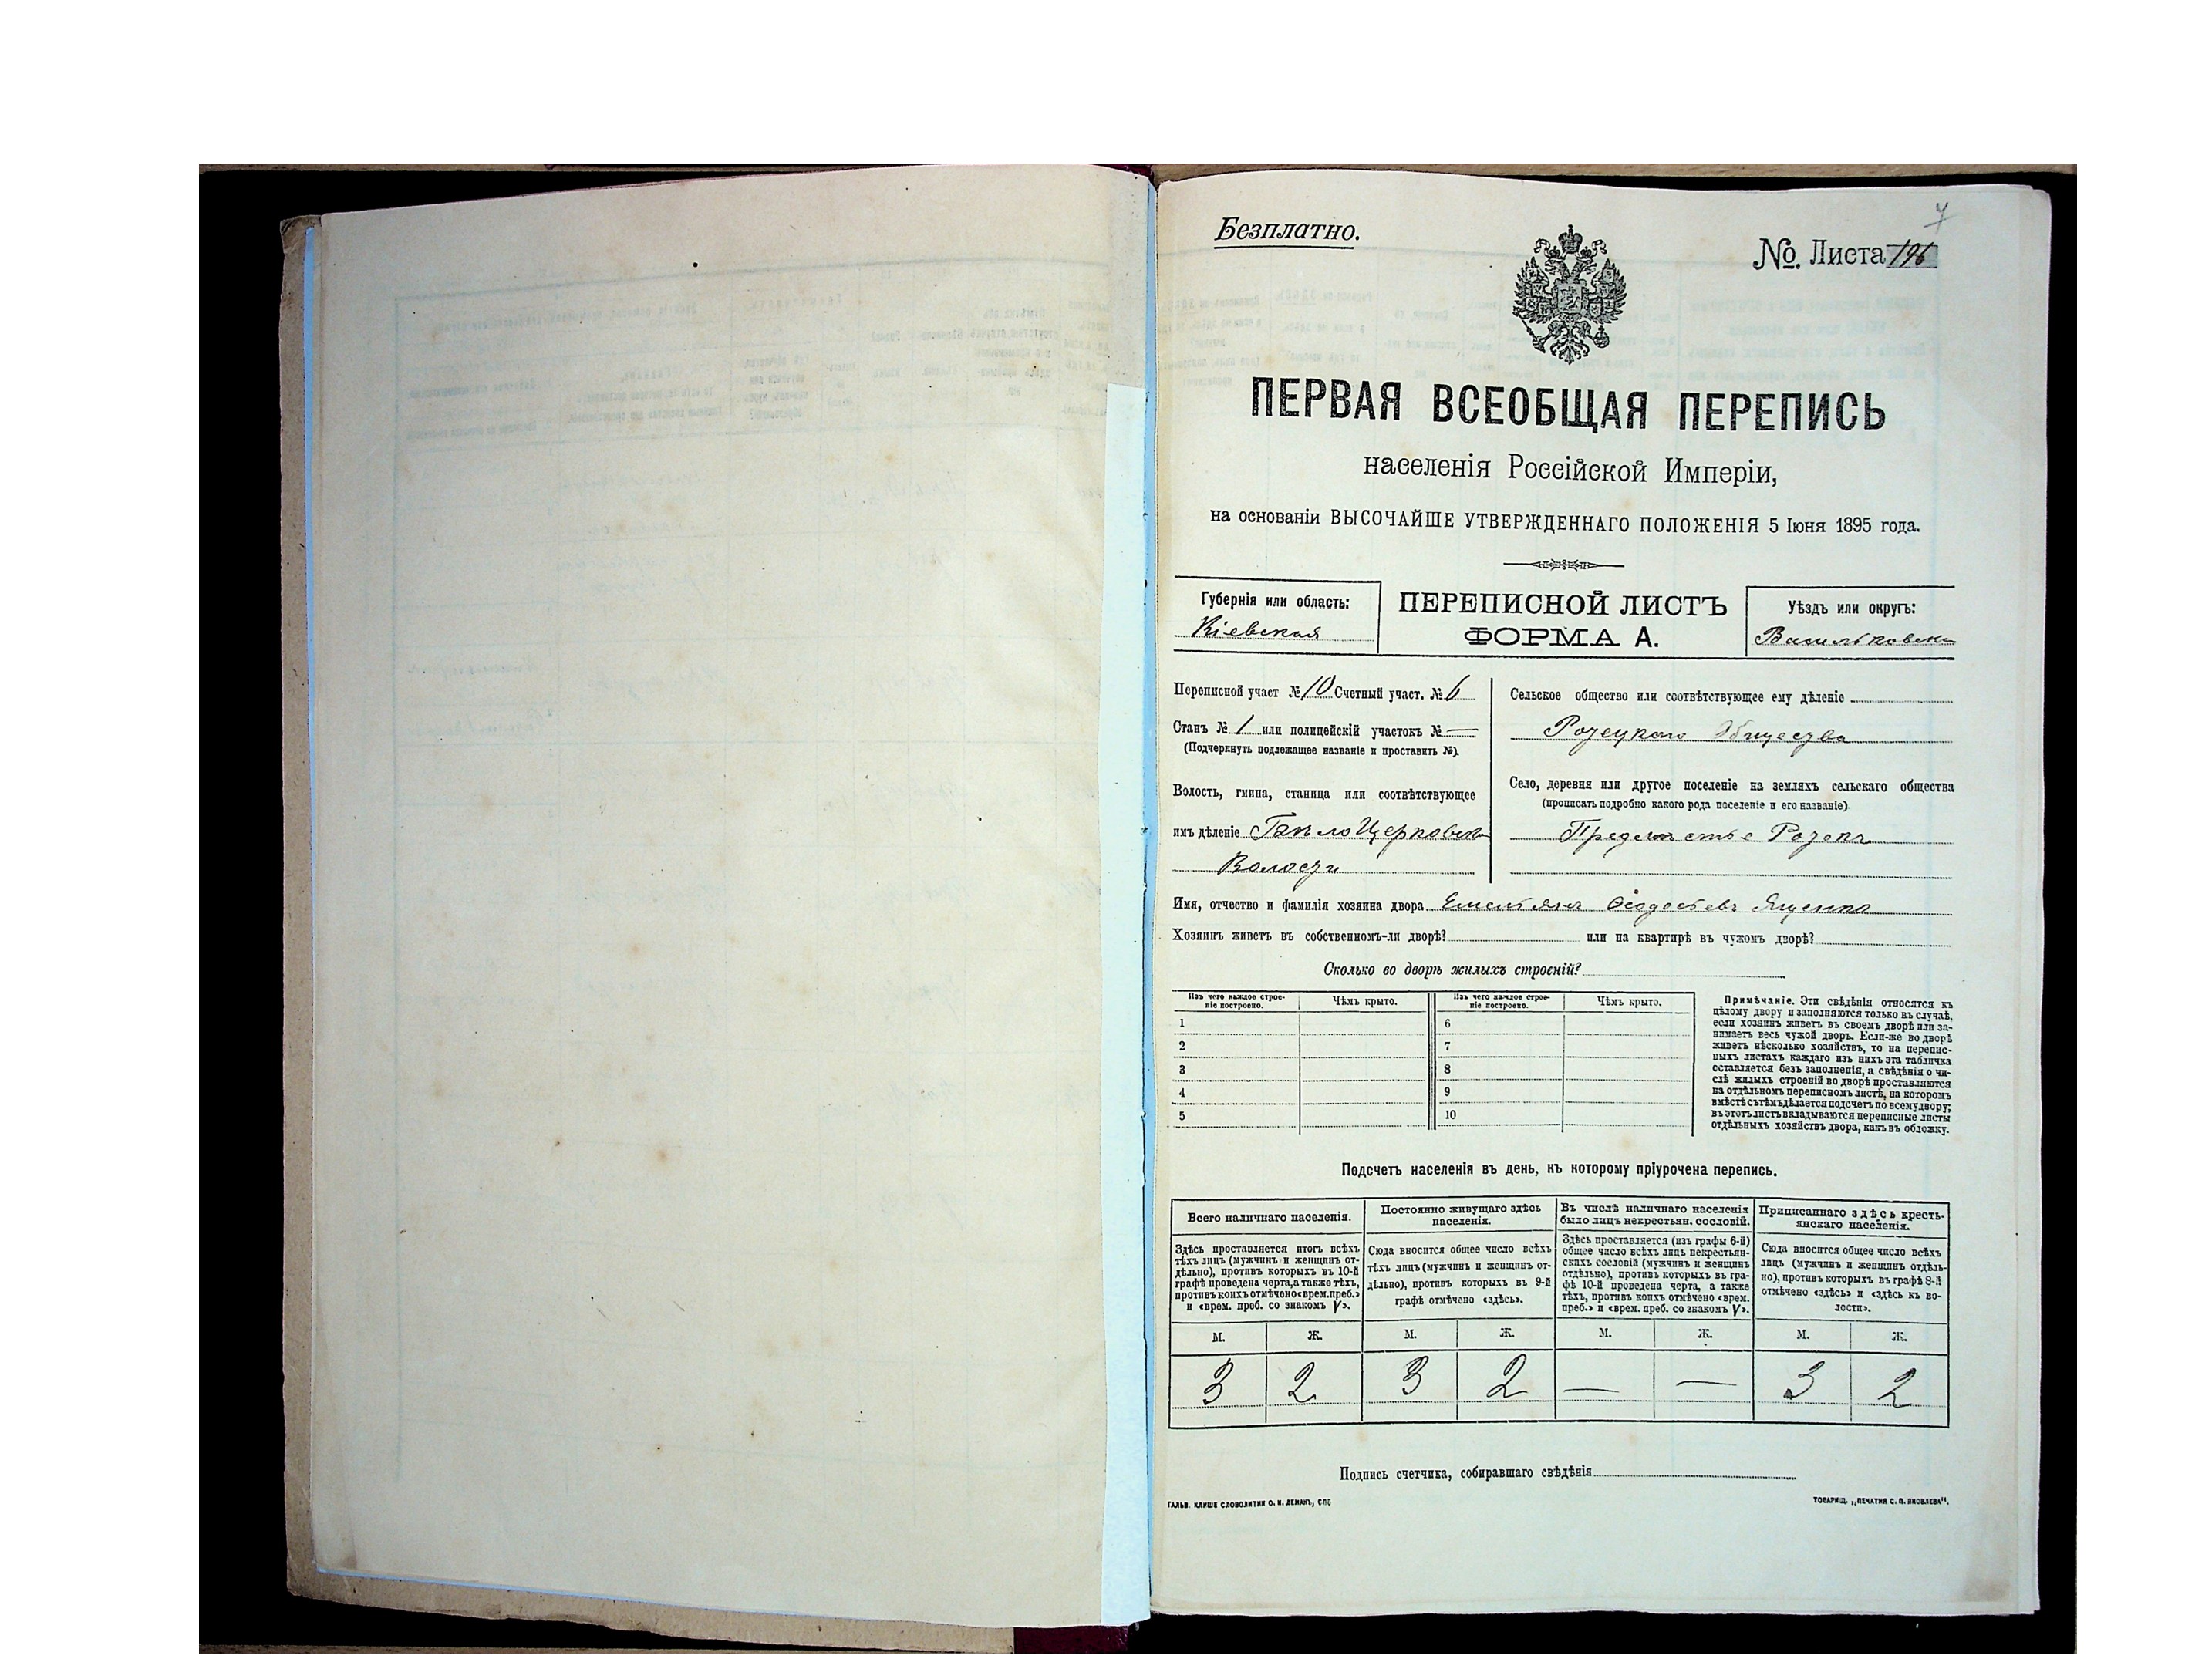 7
Безплатно.
№. Листа 196
ПЕРВАЯ ВСЕОБЩАЯ ПЕРЕПИСЬ
населенія Россійской Имперіи,
на основаніи ВЫСОЧАЙШЕ УТВЕРЖДЕННАГО ПОЛОЖЕНІЯ 5 Іюня 1895 года.
Губернія или область:
Кіевская
ПЕРЕПИСНОЙ ЛИСТЪ
ФОРМА А.
Уѣздъ или округъ:
Васильковск
Переписной участ № 10 Счетный участ. № 6
Станъ № 1 или полицейскій участокъ № —
(Подчеркнуть подлежащее названіе и проставить №).
Волость, гмина, станица или соотвѣтствующее
имъ дѣленіе Бѣлоцерковск
Волости
Сельское общество или соотвѣтствующее ему дѣленіе
Общества
Село, деревня или другое поселеніе на земляхъ сельскаго общества
(прописать подробно какого рода поселеніе и его названіе).
Предмѣстье
Имя, отчество и фамилія хозяина двора Емельянъ Ященко
Хозяинъ живетъ въ собственномъ-ли дворѣ? или на квартирѣ въ чужомъ дворѣ?
Сколько во дворѣ жилыхъ строеній?
Изъ чего каждое строеніе построено.
Чѣмъ крыто.
Изъ чего каждое строеніе построено.
Чѣмъ крыто.
1 6
2 7
3 8
4 9
5 10
Примѣчаніе. Эти свѣдѣнія относятся къ
цѣлому двору и заполняются только въ случаѣ,
если хозяинъ живетъ въ своемъ дворѣ или за-
нимаетъ весь чужой дворъ. Если-же во дворѣ
живетъ нѣсколько хозяйствъ, то на перепис-
ныхъ листахъ каждаго изъ нихъ эта табличка
оставляется безъ заполненія, а свѣдѣнія о чи-
слѣ жилыхъ строеній во дворѣ проставляются
на отдѣльномъ переписномъ листѣ, на которомъ
вмѣстѣ съ тѣмъ дѣлается подсчетъ по всему двору;
въ этотъ листъ вкладываются переписные листы
отдѣльныхъ хозяйствъ двора, какъ въ обложку.
Подсчетъ населенія въ день, къ которому пріурочена перепись.
Всего наличнаго населенія.
Здѣсь проставляется итогъ всѣхъ
тѣхъ лицъ (мужчинъ и женщинъ от-
дѣльно), противъ которыхъ въ 10-й
графѣ проведена черта, а также тѣхъ,
противъ коихъ отмѣчено «врем. преб.»
и «врем. преб. со знакомъ V».
Постоянно живущаго здѣсь
населенія.
Сюда вносится общее число всѣхъ
тѣхъ лицъ (мужчинъ и женщинъ от-
дѣльно), противъ которыхъ въ 9-й
графѣ отмѣчено «здѣсь».
Въ числѣ наличнаго населенія
было лицъ некрестьян. сословій.
Здѣсь проставляется (изъ графы 6-й)
общее число всѣхъ лицъ некрестьян-
скихъ сословій (мужчинъ и женщинъ
отдѣльно), противъ которыхъ въ гра-
фѣ 10-й проведена черта, а также
тѣхъ, противъ коихъ отмѣчено «врем.
преб.» и «врем. преб. со знакомъ V».
Приписаннаго здѣсь кресть-
янскаго населенія.
Сюда вносится общее число всѣхъ
лицъ (мужчинъ и женщинъ отдѣль-
но), противъ которыхъ въ графѣ 8-й
отмѣчено «здѣсь» и «здѣсь къ во-
лости».
М. Ж. М. Ж. М. Ж. М. Ж.
3 2 3 2 — — 3 2
Подпись счетчика, собиравшаго свѣдѣнія
ГАЛЬВ. КЛИШЕ СЛОВОЛИТНИ О. И. ЛЕМАНЪ, СПБ
ТОВАРИЩ. „ПЕЧАТНЯ С. П. ЯКОВЛЕВА".